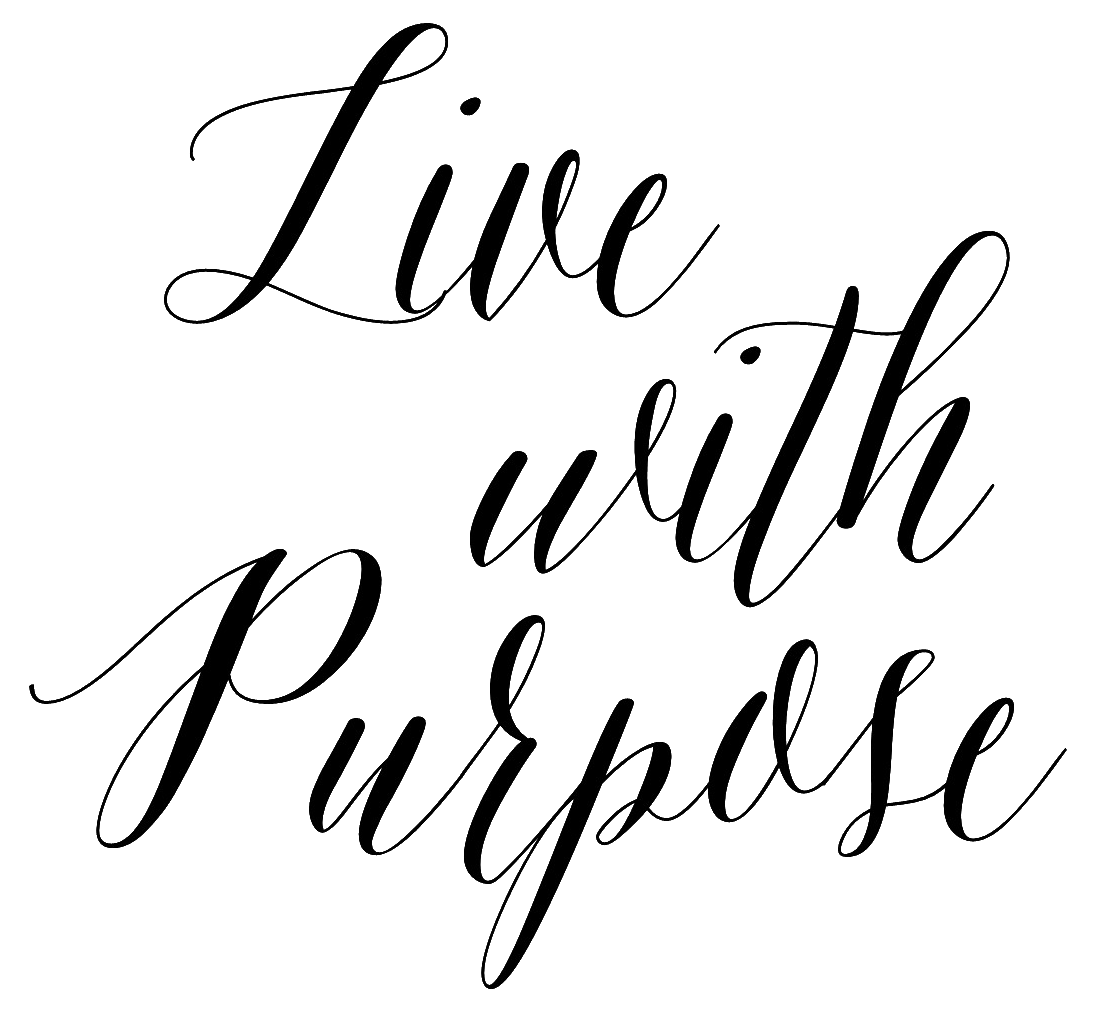 Live
with
Purpose